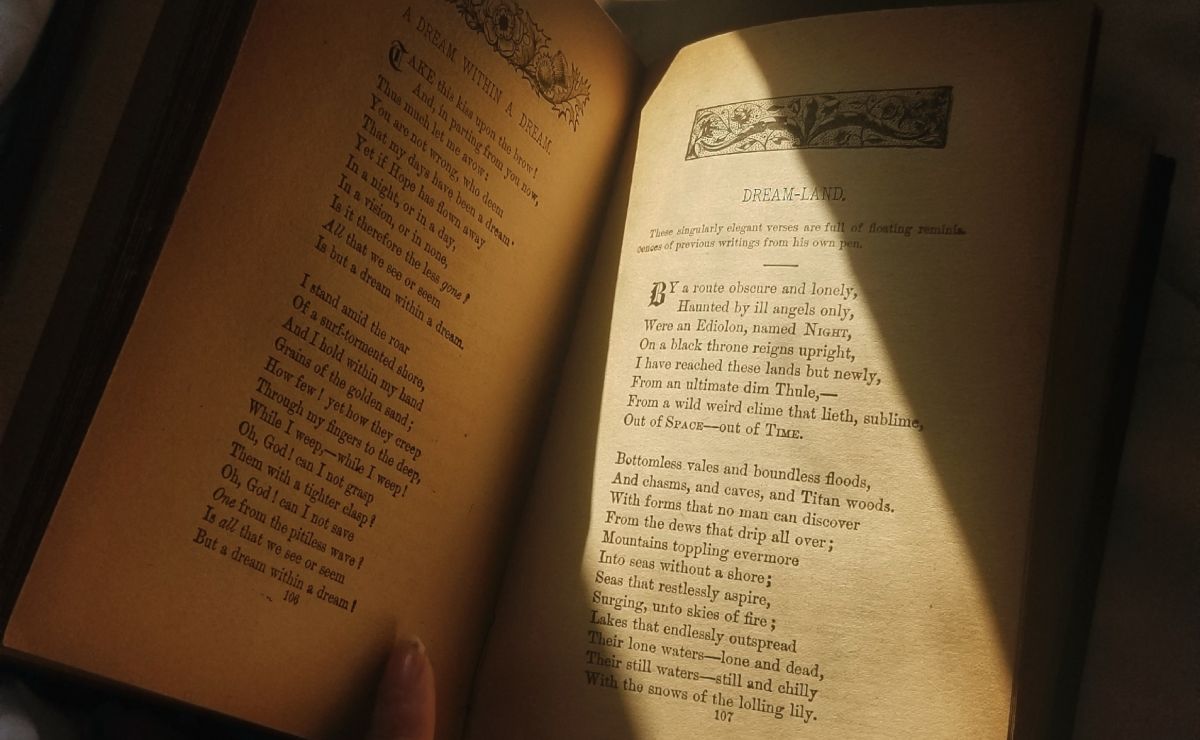 A DREAM WITHIN A DREAM.
TAKE this kiss upon the brow!
And, in parting from you now,
Thus much let me avow:
You are not wrong, who deem
That my days have been a dream·
Yet if Hope has flown away
In a night, or in a day,
In a vision, or in none,
Is it therefore the less gone?
All that we see or seem
Is but a dream within a dream.
I stand amid the roar
Of a surf-tormented shore,
And I hold within my hand
Grains of the golden sand;
How few! yet how they creep
Through my fingers to the deep,
While I weep,—while I weep!
Oh, God! can I not grasp
Them with a tighter clasp?
Oh, God! can I not save
One from the pitiless wave?
Is all that we see or seem
But a dream within a dream!
106
DREAM-LAND.
These singularly elegant verses are full of floating reminis-
cences of previous writings from his own pen.
BY a route obscure and lonely,
Haunted by ill angels only,
Were an Ediolon, named NIGHT,
On a black throne reigns upright,
I have reached these lands but newly,
From an ultimate dim Thule,—
From a wild weird clime that lieth, sublime,
Out of SPACE—out of TIME.
Bottomless vales and boundless floods,
And chasms, and caves, and Titan woods.
With forms that no man can discover
From the dews that drip all over;
Mountains toppling evermore
Into seas without a shore;
Seas that restlessly aspire,
Surging, unto skies of fire;
Lakes that endlessly outspread
Their lone waters—lone and dead,
Their still waters—still and chilly
With the snows of the lolling lily.
107